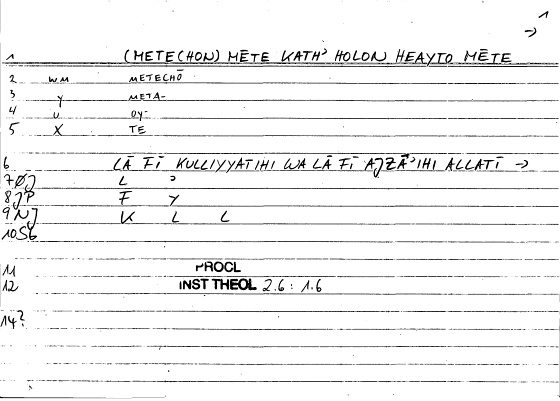 1
→
1 (METECHON) MĒTE KATH' HOLON HEAYTO MĒTE
2 W.M METECHŌ
3 Y META-
4 U OY-
5 X TE
6 LĀ FĪ KULLIYYATIHI WA LĀ FĪ AJZĀ'IHI ALLATĪ →
7 ØJ L ɔ
8 JP F Y
9 NJ K L L
10 S6
11 PROCL
12 INST THEOL 2.6: 1.6
14?